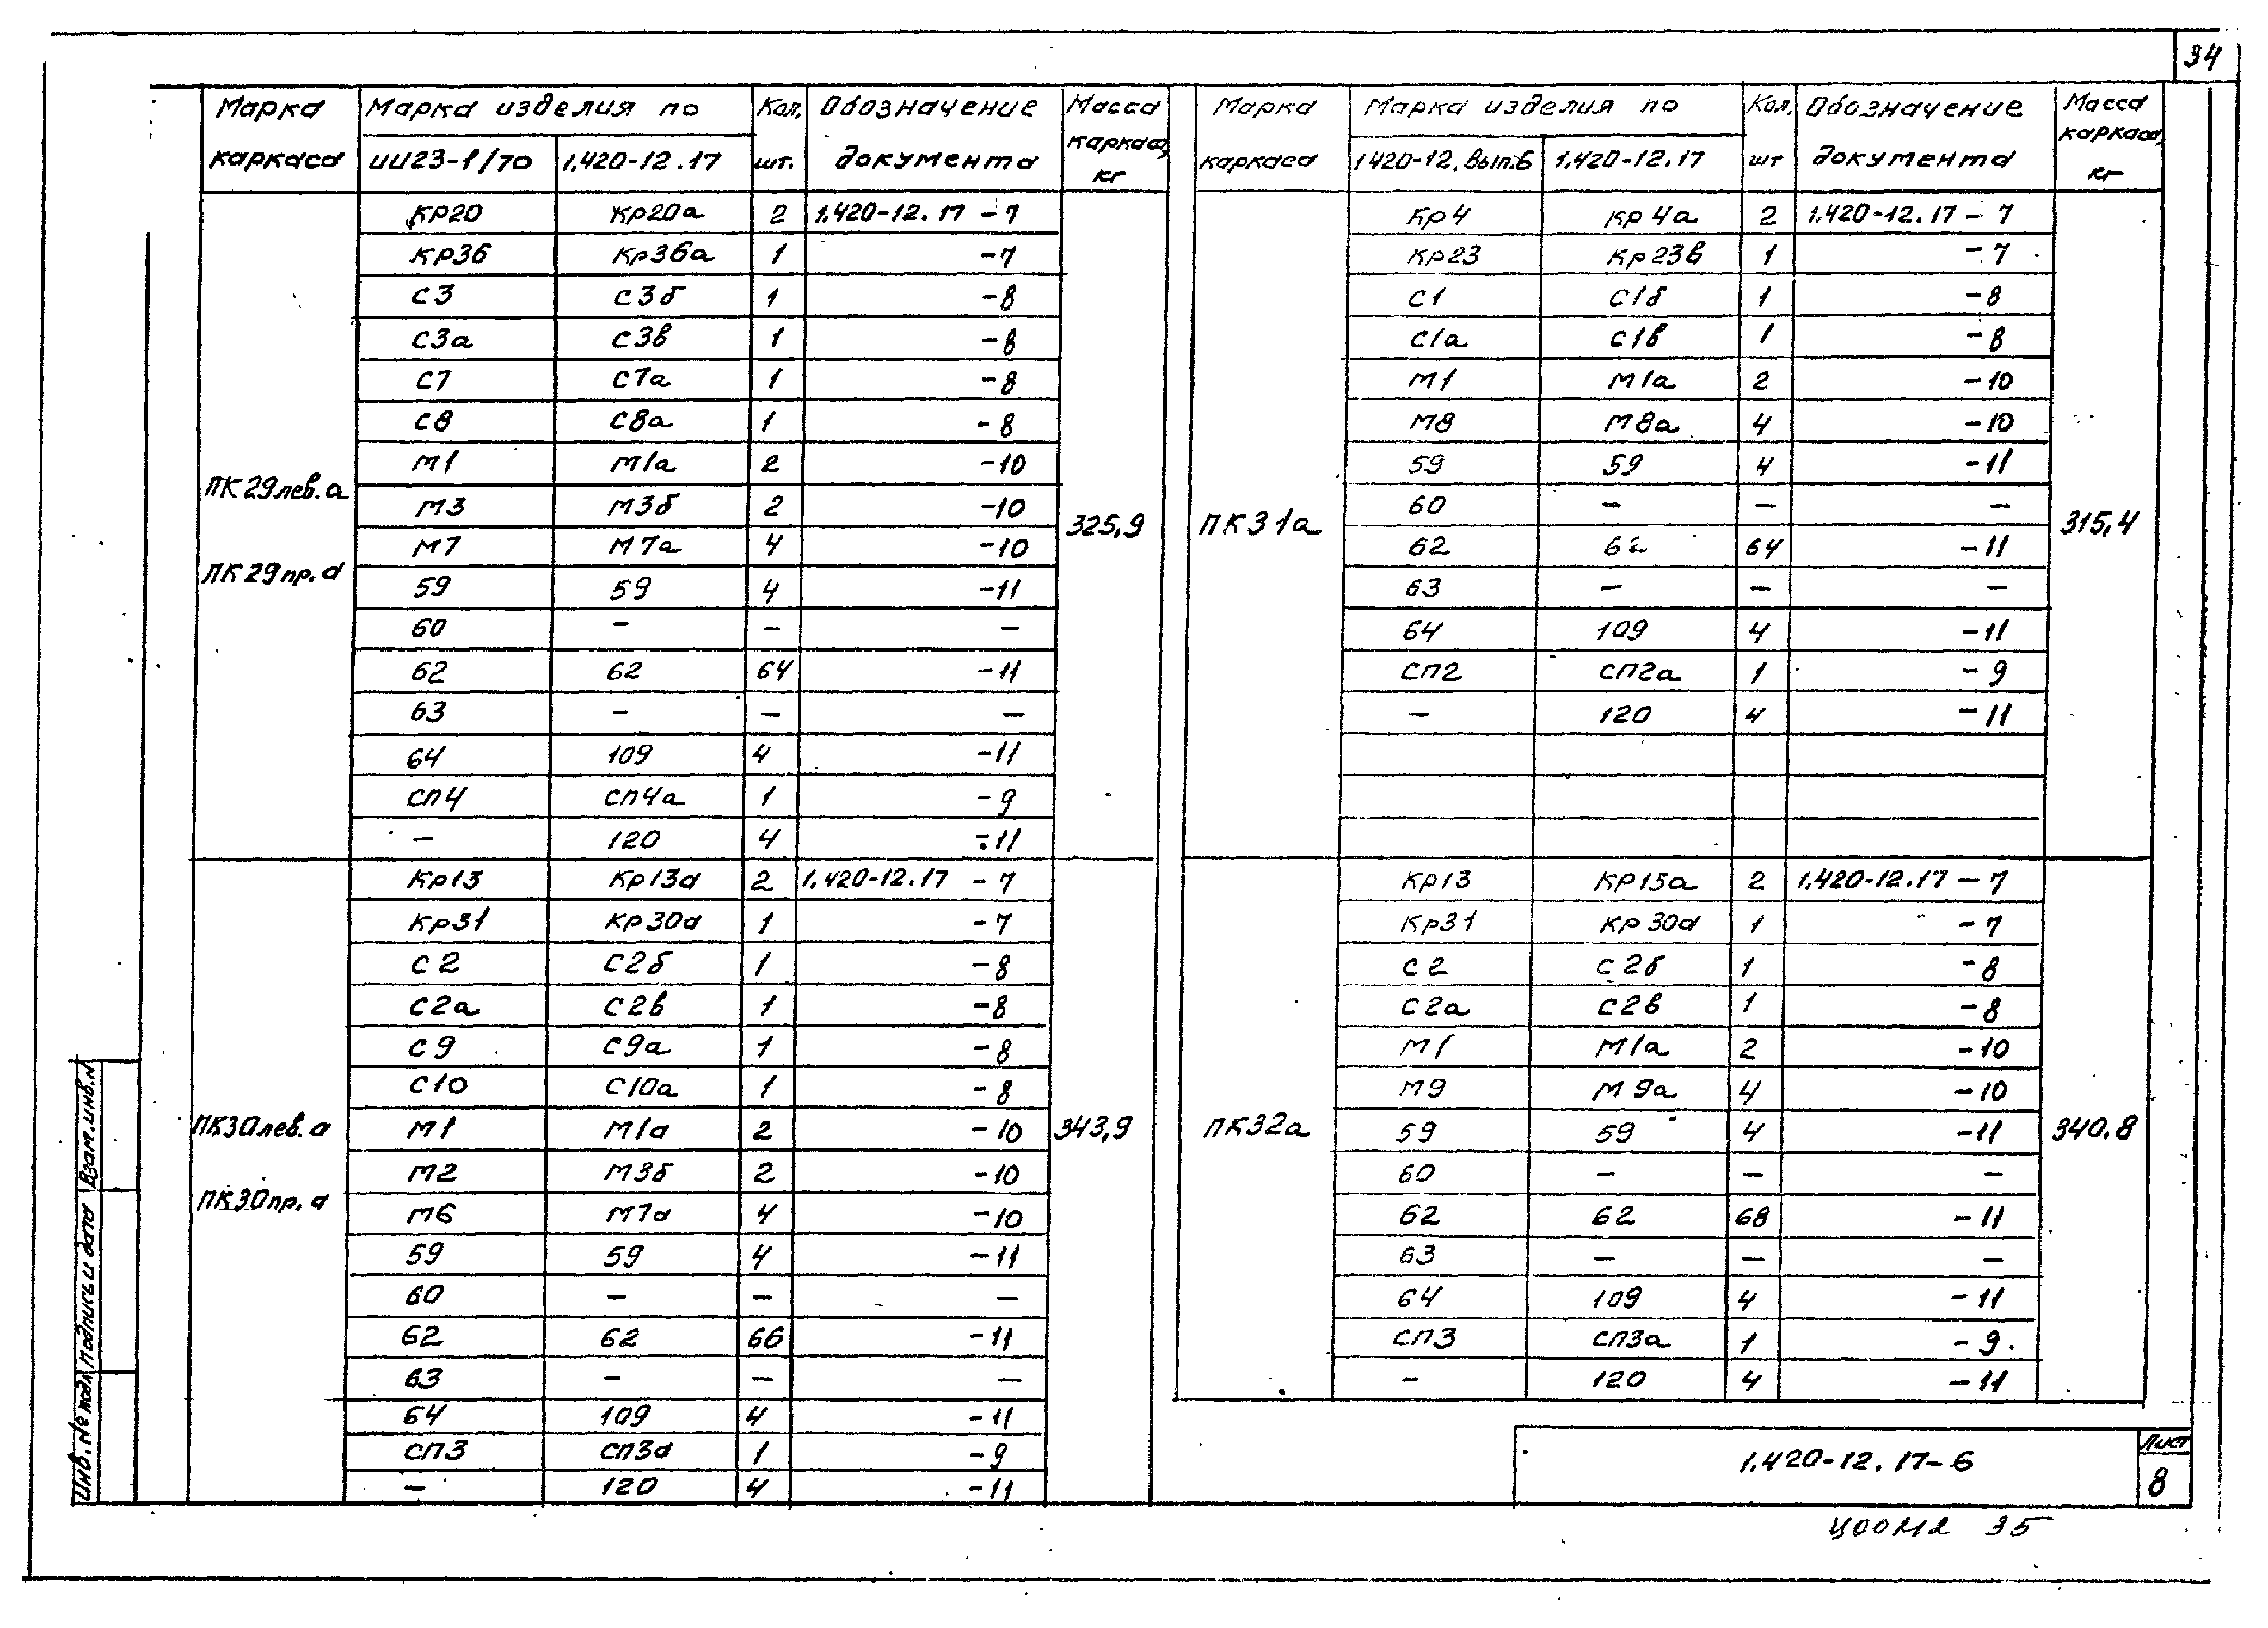 34
Марка каркаса | Марка изделия по | Кол. шт. | Обозначение документа | Масса каркаса, кг
ИИ23-1/70 | 1.420-12.17
КР20 Кр20а 2 1.420-12.17 -7
КР36 Кр36а 1 -7
С3 С3б 1 -8
С3а С3в 1 -8
С7 С7а 1 -8
С8 С8а 1 -8
М1 М1а 2 -10
ПК29лев.а
М3 М3б 2 -10
325,9
М7 М7а 4 -10
ПК29пр.а
59 59 4 -11
60 – – –
62 62 64 -11
63 – – –
64 109 4 -11
СП4 СП4а 1 -9
– 120 4 -11
Кр13 Кр13а 2 1.420-12.17 -7
Кр31 Кр30а 1 -7
С2 С2б 1 -8
С2а С2в 1 -8
С9 С9а 1 -8
С10 С10а 1 -8
ПК30лев.а
М1 М1а 2 -10
343,9
М2 М3б 2 -10
ПК30пр.а
М6 М7а 4 -10
59 59 4 -11
60 – – –
62 62 66 -11
63 – – –
64 109 4 -11
СП3 СП3а 1 -9
– 120 4 -11
Марка каркаса | Марка изделия по | Кол. шт | Обозначение документа | Масса каркаса, кг
1.420-12.вып.6 | 1.420-12.17
Кр4 Кр4а 2 1.420-12.17 -7
Кр23 Кр23в 1 -7
С1 С1б 1 -8
С1а С1в 1 -8
М1 М1а 2 -10
М8 М8а 4 -10
59 59 4 -11
60 – – –
ПК31а
315,4
62 62 64 -11
63 – – –
64 109 4 -11
СП2 СП2а 1 -9
– 120 4 -11
Кр13 КР15а 2 1.420-12.17 -7
Кр31 КР30а 1 -7
С2 С2б 1 -8
С2а С2в 1 -8
М1 М1а 2 -10
М9 М9а 4 -10
ПК32а
59 59 4 -11
340.8
60 – – –
62 62 68 -11
63 – – –
64 109 4 -11
СП3 СП3а 1 -9
– 120 4 -11
Инв. № подл. Подпись и дата Взам. инв. N
1.420-12.17-6
Лист
8
Ц00212 35